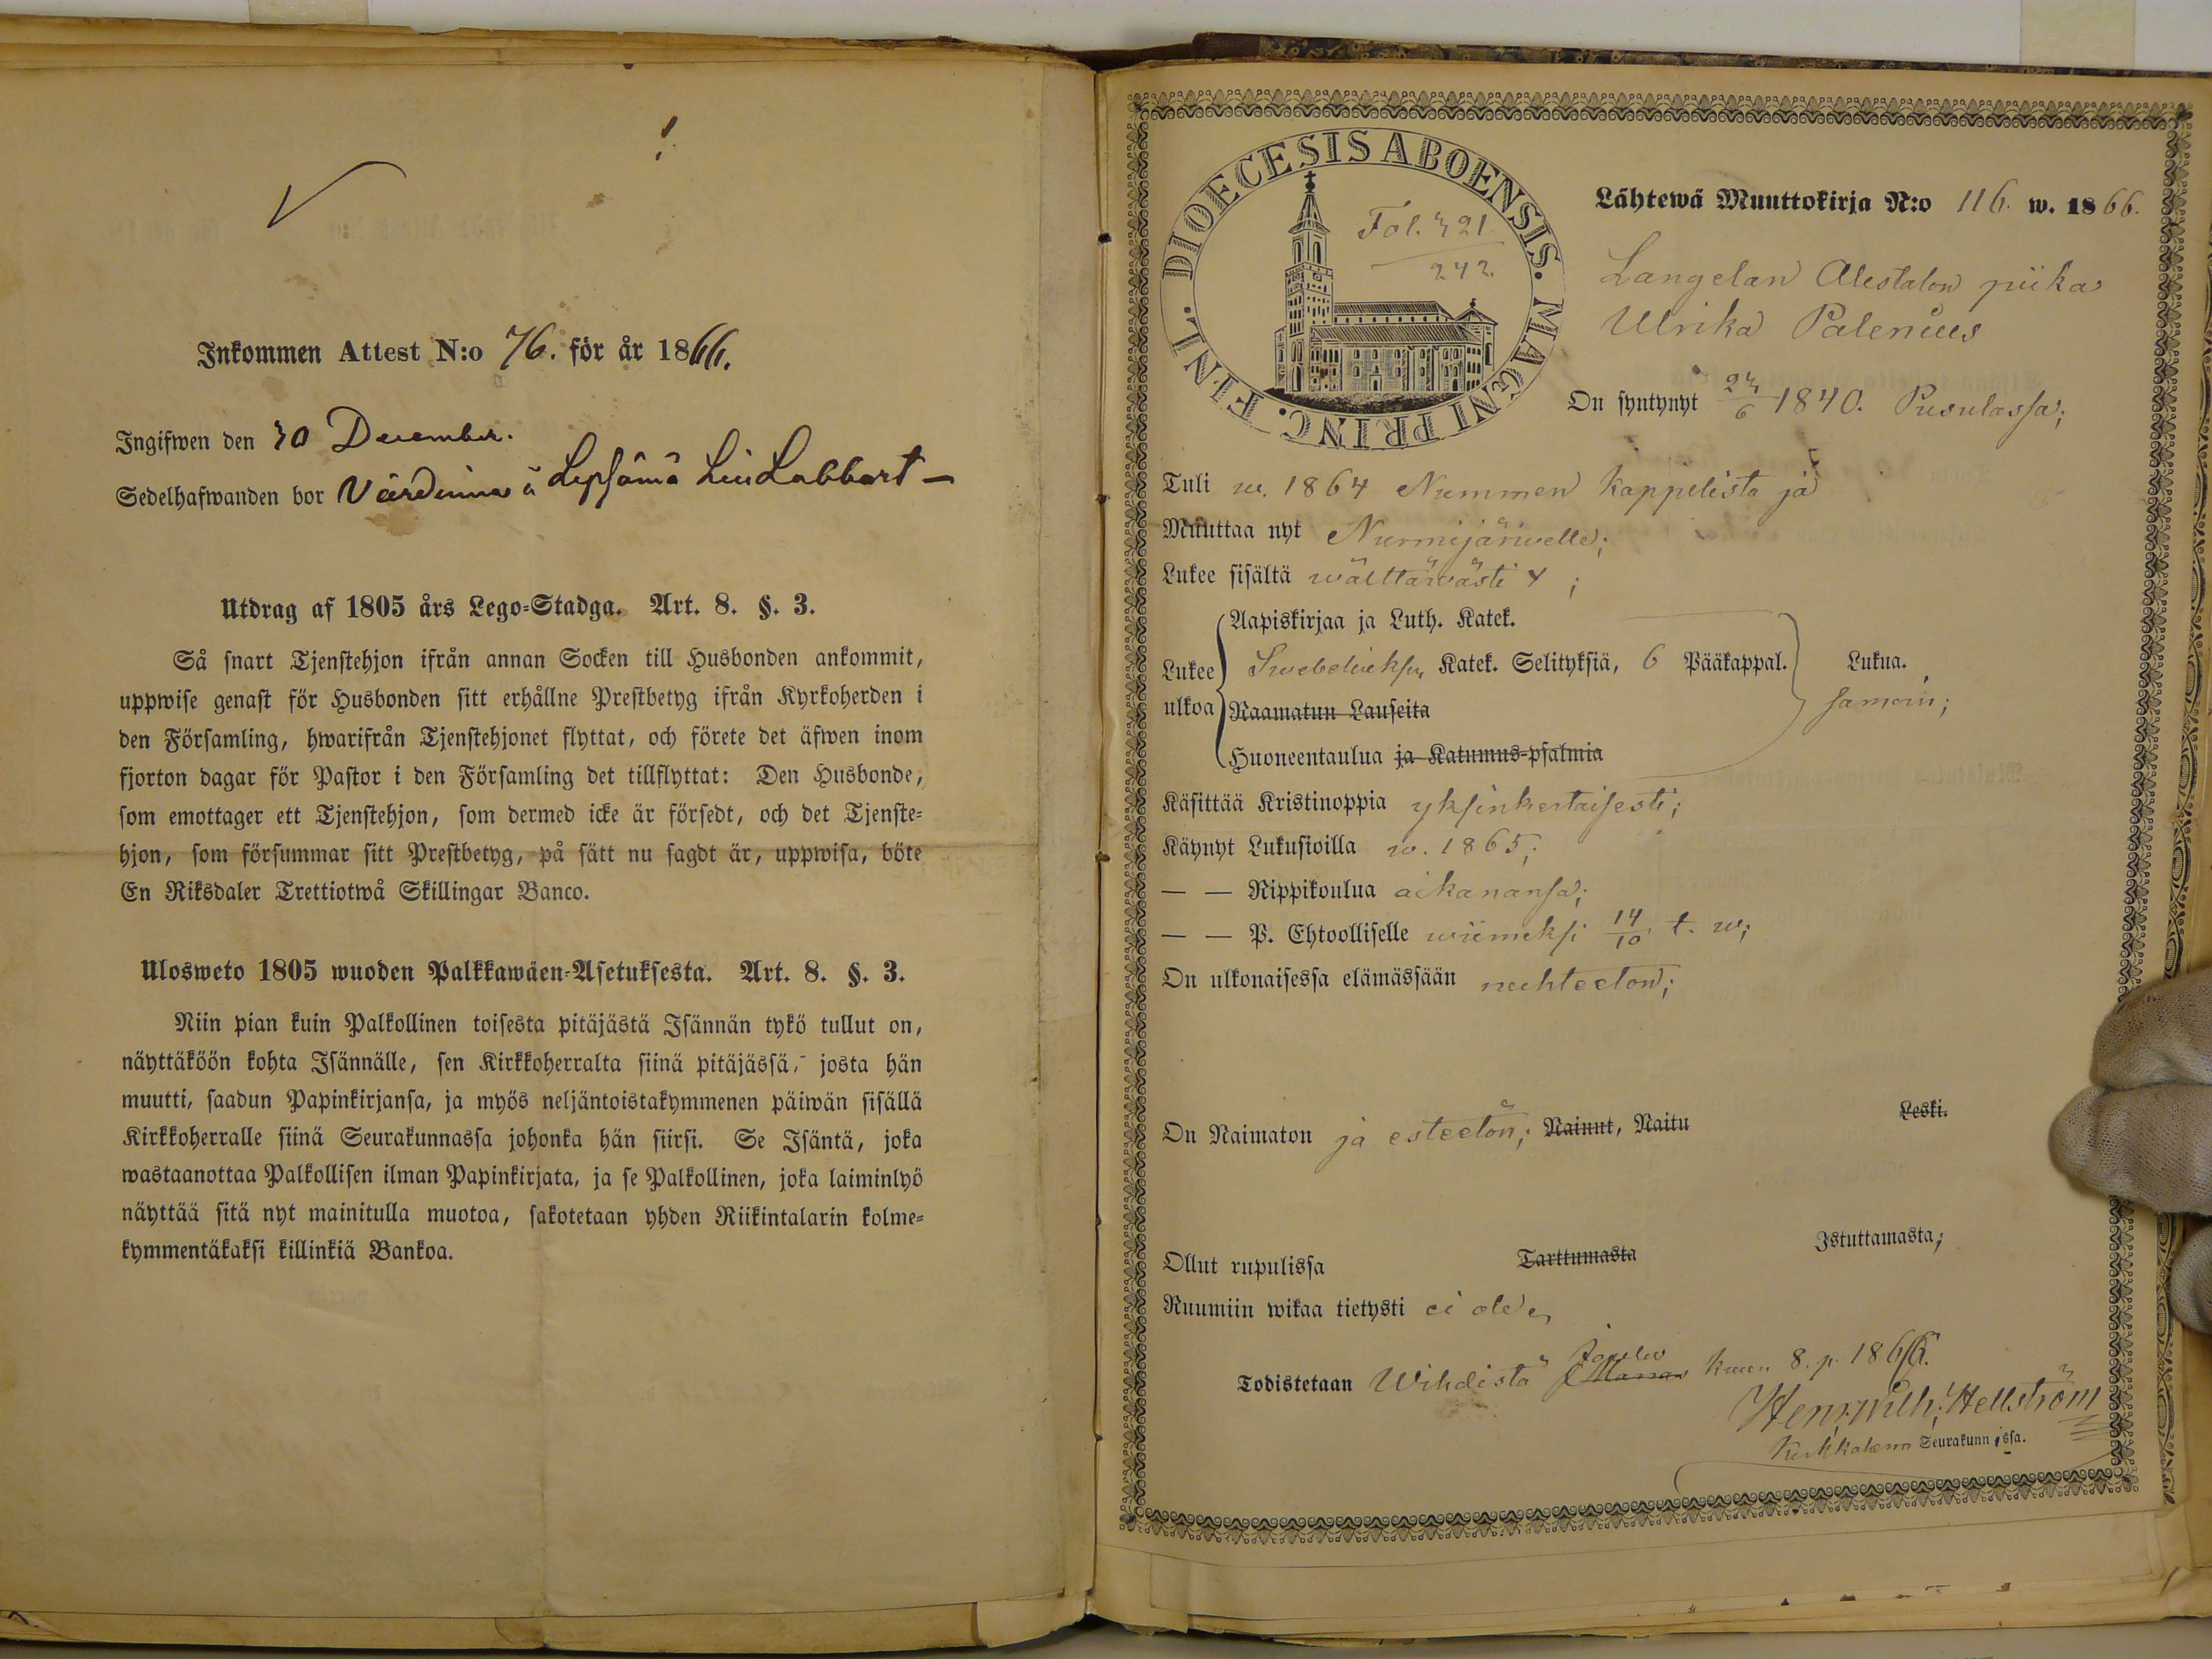 Inkommen Attest N:o 76. för år 1866.
Ingifwen den 30 December.
Sedelhafwanden bor Värdinna å Lepsämä
Utdrag af 1805 års Lego=Stadga. Art. 8. §. 3.
Så snart Tjenstehjon ifrån annan Socken till Husbonden ankommit,
uppwise genast för Husbonden sitt erhållne Prestbetyg ifrån Kyrkoherden i
den Församling, hwarifrån Tjenstehjonet flyttat, och förete det äfwen inom
fjorton dagar för Pastor i den Församling det tillflyttat: Den Husbonde,
som emottager ett Tjenstehjon, som dermed icke är försedt, och det Tjenste=
hjon, som försummar sitt Prestbetyg, på sätt nu sagdt är, uppwisa, böte
En Riksdaler Trettiotwå Skillingar Banco.
Ulosweto 1805 wuoden Palkkawäen=Asetuksesta. Art. 8. §. 3.
Niin pian kuin Palkollinen toisesta pitäjästä Isännän tykö tullut on,
näyttäköön kohta Isännälle, sen Kirkkoherralta siinä pitäjässä, josta hän
muutti, saadun Papinkirjansa, ja myös neljäntoistakymmenen päiwän sisällä
Kirkkoherralle siinä Seurakunnassa johonka hän siirsi. Se Isäntä, joka
wastaanottaa Palkollisen ilman Papinkirjata, ja se Palkollinen, joka laiminlyö
näyttää sitä nyt mainitulla muotoa, sakotetaan yhden Riikintalarin kolme=
kymmentäkaksi killinkiä Bankoa.
DIOECESIS ABOENSIS. MAGNI PRINC. FINL.
Fol. 321
242.
Lähtewä Muuttokirja N:o 116. w. 1866.
Langelan Alestalon piika
Ulrika Palenius
On syntynyt 23/6 1840. Pusulassa;
Tuli w. 1864 Nummen kappelista ja
Muuttaa nyt Nurmijärwelle;
Lukee sisältä wälttäwästi 4;
Aapiskirjaa ja Luth. Katek.
Lukee Swebeliuksen Katek. Selityksiä, 6 Pääkappal. Lukua.
ulkoa Raamatun Lauseita samoin;
Huoneentaulua ja Katumus=psalmia
Käsittää Kristinoppia yksinkertaisesti;
Käynyt Lukusioilla w. 1865;
— — Rippikoulua aikanansa;
— — P. Ehtoolliselle wiimeksi 14/10 t. w;
On ulkonaisessa elämässään nuhteeton;
On Naimaton ja esteetön; Nainut, Naitu Leski.
Ollut rupulissa Tarttumasta Istuttamasta;
Ruumiin wikaa tietysti ei ole
Todistetaan Wihdistä Joulu kuun 8. p. 1866.
Henr. Wilh. Hellström
Kirkkoherra Seurakunnissa.